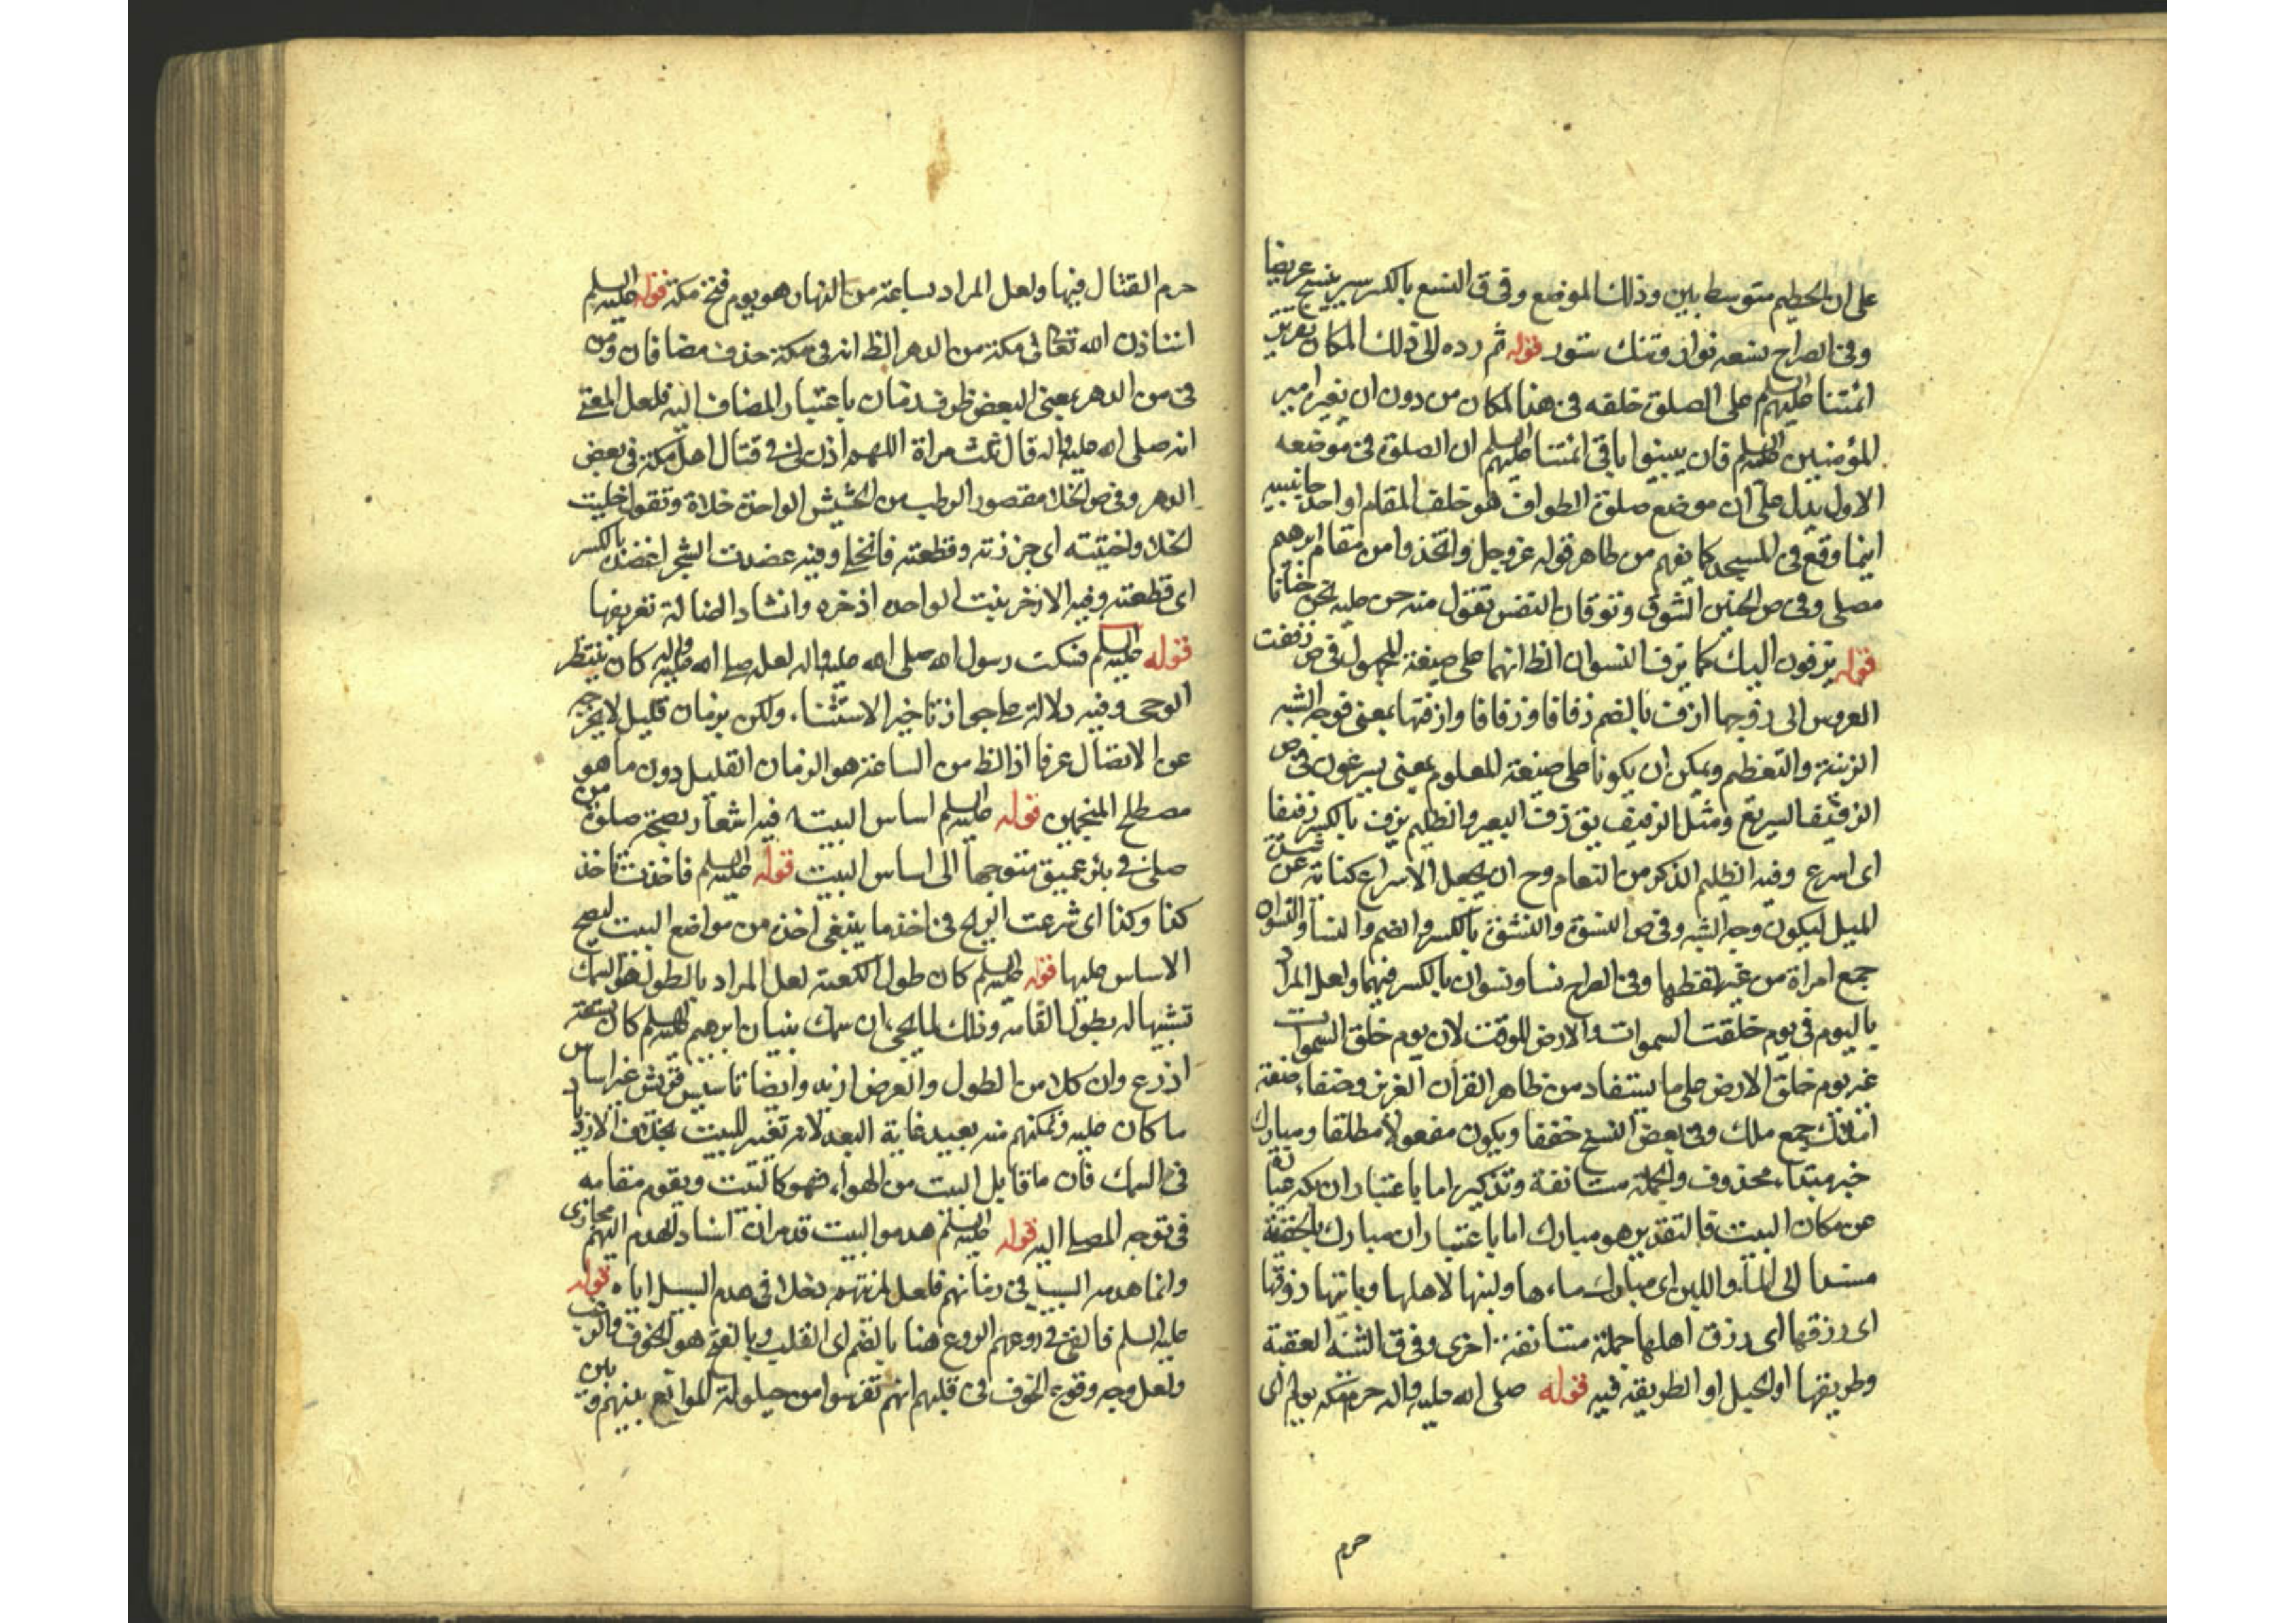 على ان الحطيم متوسط بين وذلك الموضع وفي ق النسع بالكسر سير ينسج عريضا
وفي الصراح نسعه نوار وتنك ستور قوله ثم رده الى ذلك المكان تقرير
ائمتنا عليهم السلم على الصلوة خلفه في هذا المكان من دون ان يغير امير
المؤمنين عليه السلم فان يبينوا باقي ائمتنا عليهم السلم ان الصلوة في موضعه
الاول يدل على ان موضع صلوة الطواف هو خلف المقام او احد جانبيه
اينما وقع في المسجد كما يفهم من ظاهر قوله عز وجل واتخذوا من مقام ابرهيم
مصلى وفي ص الحنين الشوق وتوقان النفس تقول منه حن عليه يحن حنانا
قوله يزفون اليك كما يزف النسوان الظ انهما على صيغة المجهول في ص زففت
العروس الى زوجها ازف بالضم زفافا وزفافا وازفتها بمعنى فوجه الشبه
الزينة والتعظيم ويمكن ان يكونا على صيغة المعلوم بمعنى يسرعون في ص
الزفيف السريع ومثل الزفيف يق زف البعير والظليم يزف بالكسر زفيفا
اى اسرع وفيه الظليم الذكر من النعام وح ان يجعل الاسراع كناية عن شدة
الميل ليكون وجه الشبه وفي ص النسوة والنسوة بالكسر والضم والنسآ والنسوان
جمع امراة من غير لفظها وفي الصراح نسا ونسوان بالكسر فيهما ولعل المراد
باليوم في يوم خلقت السموات والارض للوقت لان يوم خلق السموات
غير يوم خلق الارض على ما يستفاد من ظاهر القرآن العزيز وحنفاء صفة
املاك جمع ملك وفي بعض النسخ حففا ويكون مفعولا مطلقا ومبارك
خبر مبتداء محذوف والجملة مستانفة وتذكيره اما باعتبار ان مكة عبارة
عن مكان البيت فالتقدير هو مبارك اما باعتبار ان مبارك بالحقيقة
مسندا الى المآء واللبن اى مبارك ماءها ولبنها لاهلها وياتيها رزقها
اى رزقها اى رزق اهلها جملة مستانفة اخرى وفي ق الثنية العقبة
وطريقها او الجبل او الطريقة فيه قوله صلى الله عليه واله حرم مكة يوم اى
حرم
حرم القتال فيها ولعل المراد بساعة من النهار هو يوم فتح مكة قوله عليه السلم
اننا ذن الله تعالى في مكة من الدهر الظ انه في مكة حذف مضافان ومن
في من الدهر بمعنى البعض ظرف زمان باعتبار المضاف اليه فلعل المعنى
انه صلى الله عليه واله قال ثلث مراة اللهم اذن لى في قتال اهل مكة في بعض
الدهر وفي ص الخلا مقصور الرطب من الحشيش الواحدة خلاة وتقول خليت
الخلا واختليته اى جززته وقطعته فانخلى وفيه عضدت الشجر اعضده بالكسر
اى قطعته وفيه الاذخر نبت الواحدة اذخرة وانشاد الضالة تعريفها
قوله عليه السلم فسكت رسول الله صلى الله عليه واله لعله صلى الله عليه واله كان ينتظر
الوحى وفيه دلالة على جواز تاخير الاستثناء ولكن بزمان قليل لا يخرجه
عن الاتصال عرفا اذ الظ من الساعة هو الزمان القليل دون ما هو
مصطلح المنجمين قوله عليه السلم اساس البيت فيه اشعار بصحة صلوة من
صلى في بئر عميق متوجها الى اساس البيت قوله عليه السلم فاخذت تاخذ
كذا وكذا اى شرعت الريح في اخذ ما ينبغى اخذه من مواضع البيت ليصح
الاساس عليها قوله عليه السلم كان طول الكعبة لعل المراد بالطول هو السمك
تشبيها له بطول القامه وذلك لما يجئ ان سمك بنيان ابرهيم عليه السلم كان تسعة
اذرع وان كلا من الطول والعرض ازيد وايضا تاسيس قريش غير اساس
ما كان عليه وتمكنهم منه بعيد غاية البعد لانه تغيير للبيت بخلاف الازدياد
في السمك فان ما قابل البيت من الهواء فهو كالبيت ويقوم مقامه
في توجه المصلى اليه قوله عليه السلم هدموا البيت قد مر ان اسناد الهدم اليهم مجازى
وانما هدمه السيل في زمانهم فلعل لمرتبتهم دخلا في هدم السيل اياه قوله
عليه السلم فالقى في روعهم الروع هنا بالضم اى القلب وبالفتح هو الخوف والرعب
ولعل وجه وقوع الخوف في قلبهم انهم تفرسوا من حيلولة الموانع بينهم وبين